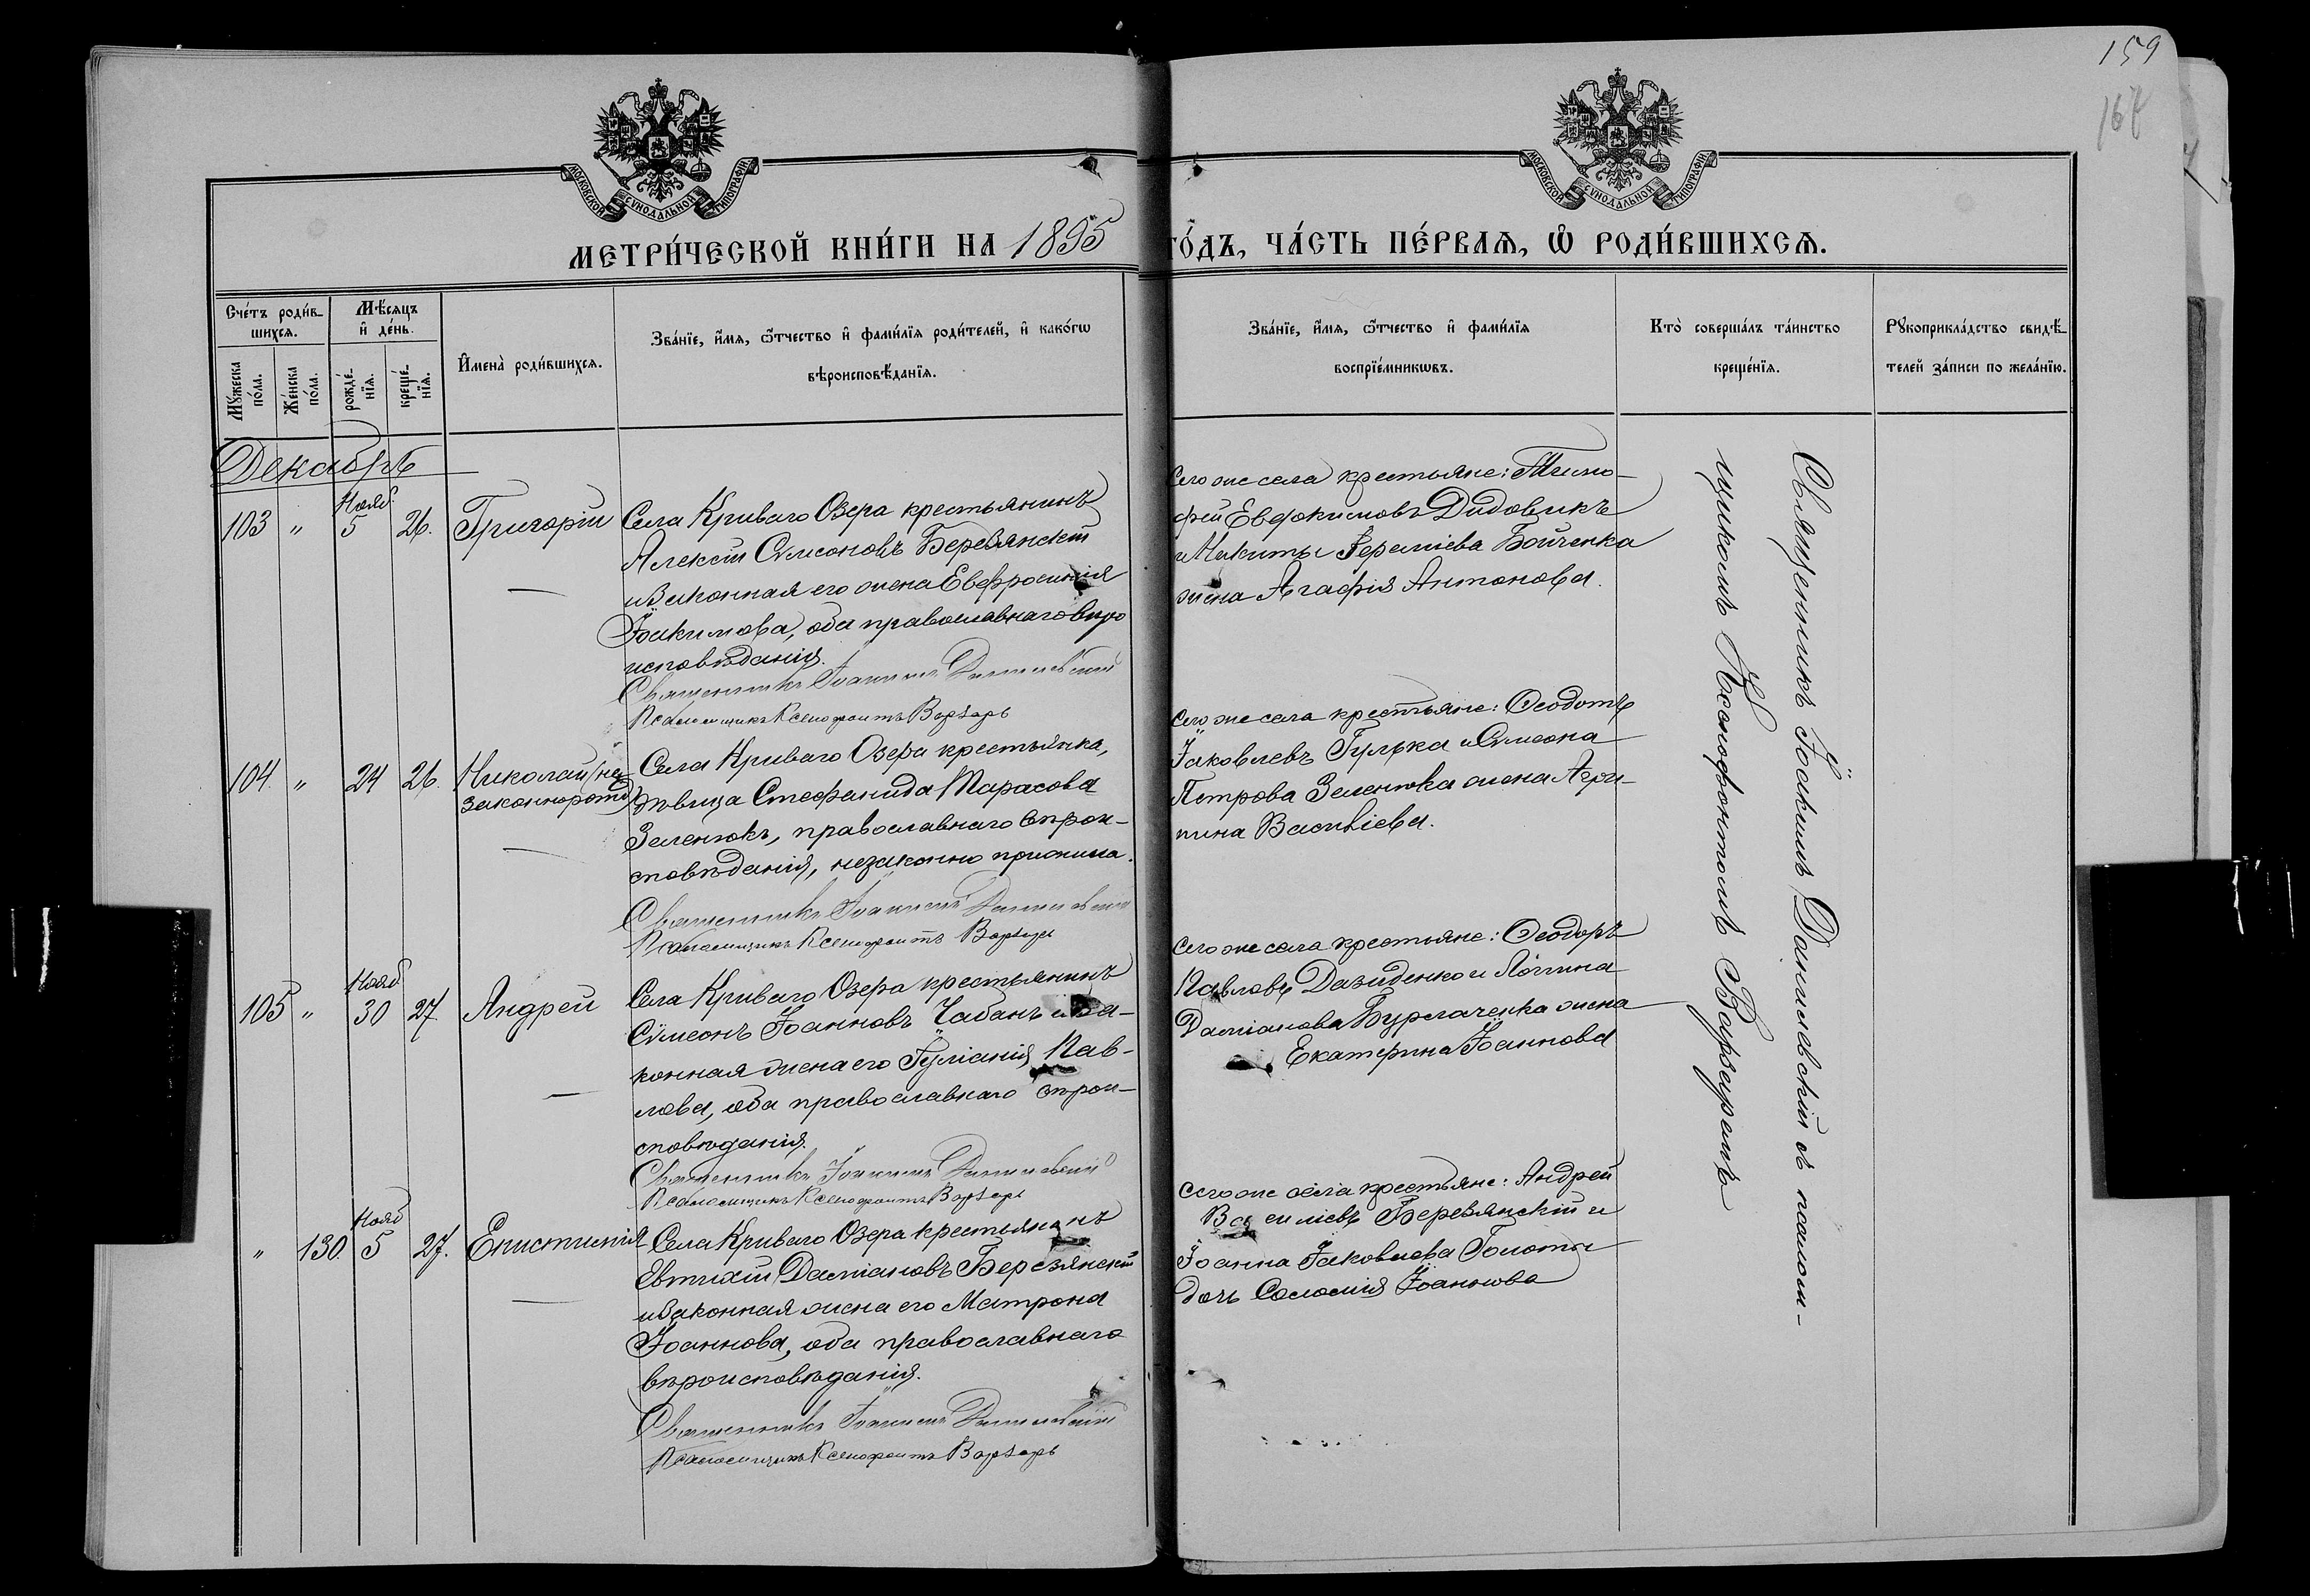 159
167
МОСКОВСКОЙ СѴНОДАЛЬНОЙ ТИПОГРАФІИ
МОСКОВСКОЙ СѴНОДАЛЬНОЙ ТИПОГРАФІИ
МЕТРИ́ЧЕСКОЙ КНИ́ГИ НА 1895 ГО́ДЪ, ЧА́СТЬ ПЕ́РВАѦ, Ѡ҆ РОДИ́ВШИХСѦ.
Сче́тъ роди́в-
шихсѧ.
Мꙋ́жеска
по́ла.
Же́нска
по́ла.
Мѣ́сѧцъ
и҆ де́нь.
рожде́-
нїѧ.
креще́-
нїѧ.
И҆мена̀ роди́вшихсѧ.
Зва́нїе, и҆́мѧ, ѻ҆́тчество и҆ фами́лїѧ роди́телей, и҆ како́гѡ
вѣроисповѣ́данїѧ.
Зва́нїе, и҆́мѧ, ѻ҆́тчество и҆ фами́лїѧ
воспрїе́мникѡвъ.
Кто̀ соверша́лъ та́инство
креще́нїѧ.
Рꙋкоприкла́дство свидѣ́-
телей за́писи по жела́нїю.
Декабрь
Нояб.
103 " 5 26. Григорій
Села Криваго Озера крестьянинъ
Алексій Сѵмеоновъ Березянскій
и законная его жена Евфросинія
Іоакимова, оба православнаго вѣро
исповѣданія.
Священникъ Іоакимъ Данилевскій
Псаломщикъ Ксенофонтъ Варзарь
Сего же села крестьяне: Тимо-
фей Евфокимовъ Дидовикъ
и Никиты Іереміева Бойченка
жена Агафія Антонова.
104. " 24 26. Николай (не
законнорожд)
Села Криваго Озера крестьянка,
дѣвица Стефанида Тарасова
Зеленюкъ, православнаго вѣрои-
сповѣданія, незаконно прижила.
Священникъ Іоакимъ Данилевскій
Псаломщикъ Ксенофонтъ Варзарь
Сего же села крестьяне: Ѳеодотъ
Іаковлевъ Гулька и Сѵмеона
Петрова Зеленюка жена Агри-
пина Василіева.
Нояб
105 " 30 27 Андрей
Села Криваго Озера крестьянинъ
Сѵмеонъ Іоанновъ Чабанъ и за-
конная жена его Іуліанія Пав-
лова, оба православнаго вѣрои-
сповѣданія.
Священникъ Іоакимъ Данилевскій
Псаломщикъ Ксенофонтъ Варзарь
Сего же села крестьяне: Ѳеодоръ
Павловъ Давиденко и Логгина
Даміанова Бурлаченка жена
Екатерина Іоаннова
Нояб
" 130. 5 27. Епистимія
Села Криваго Озера крестьянинъ
Евтихій Даміановъ Березянскій
и законная жена его Матрона
Іоаннова, оба православнаго
вѣроисповѣданія.
Священникъ Іоакимъ Данилевскій
Псаломщикъ Ксенофонтъ Варзарь
Сего же села крестьяне: Андрей
Василіевъ Березянскій и
Іоанна Іаковлева Голоты
дочь Соломія Іоаннова
Священникъ Іоакимъ Данилевскій съ псалом-
щикомъ Ксенофонтомъ Варзаремъ